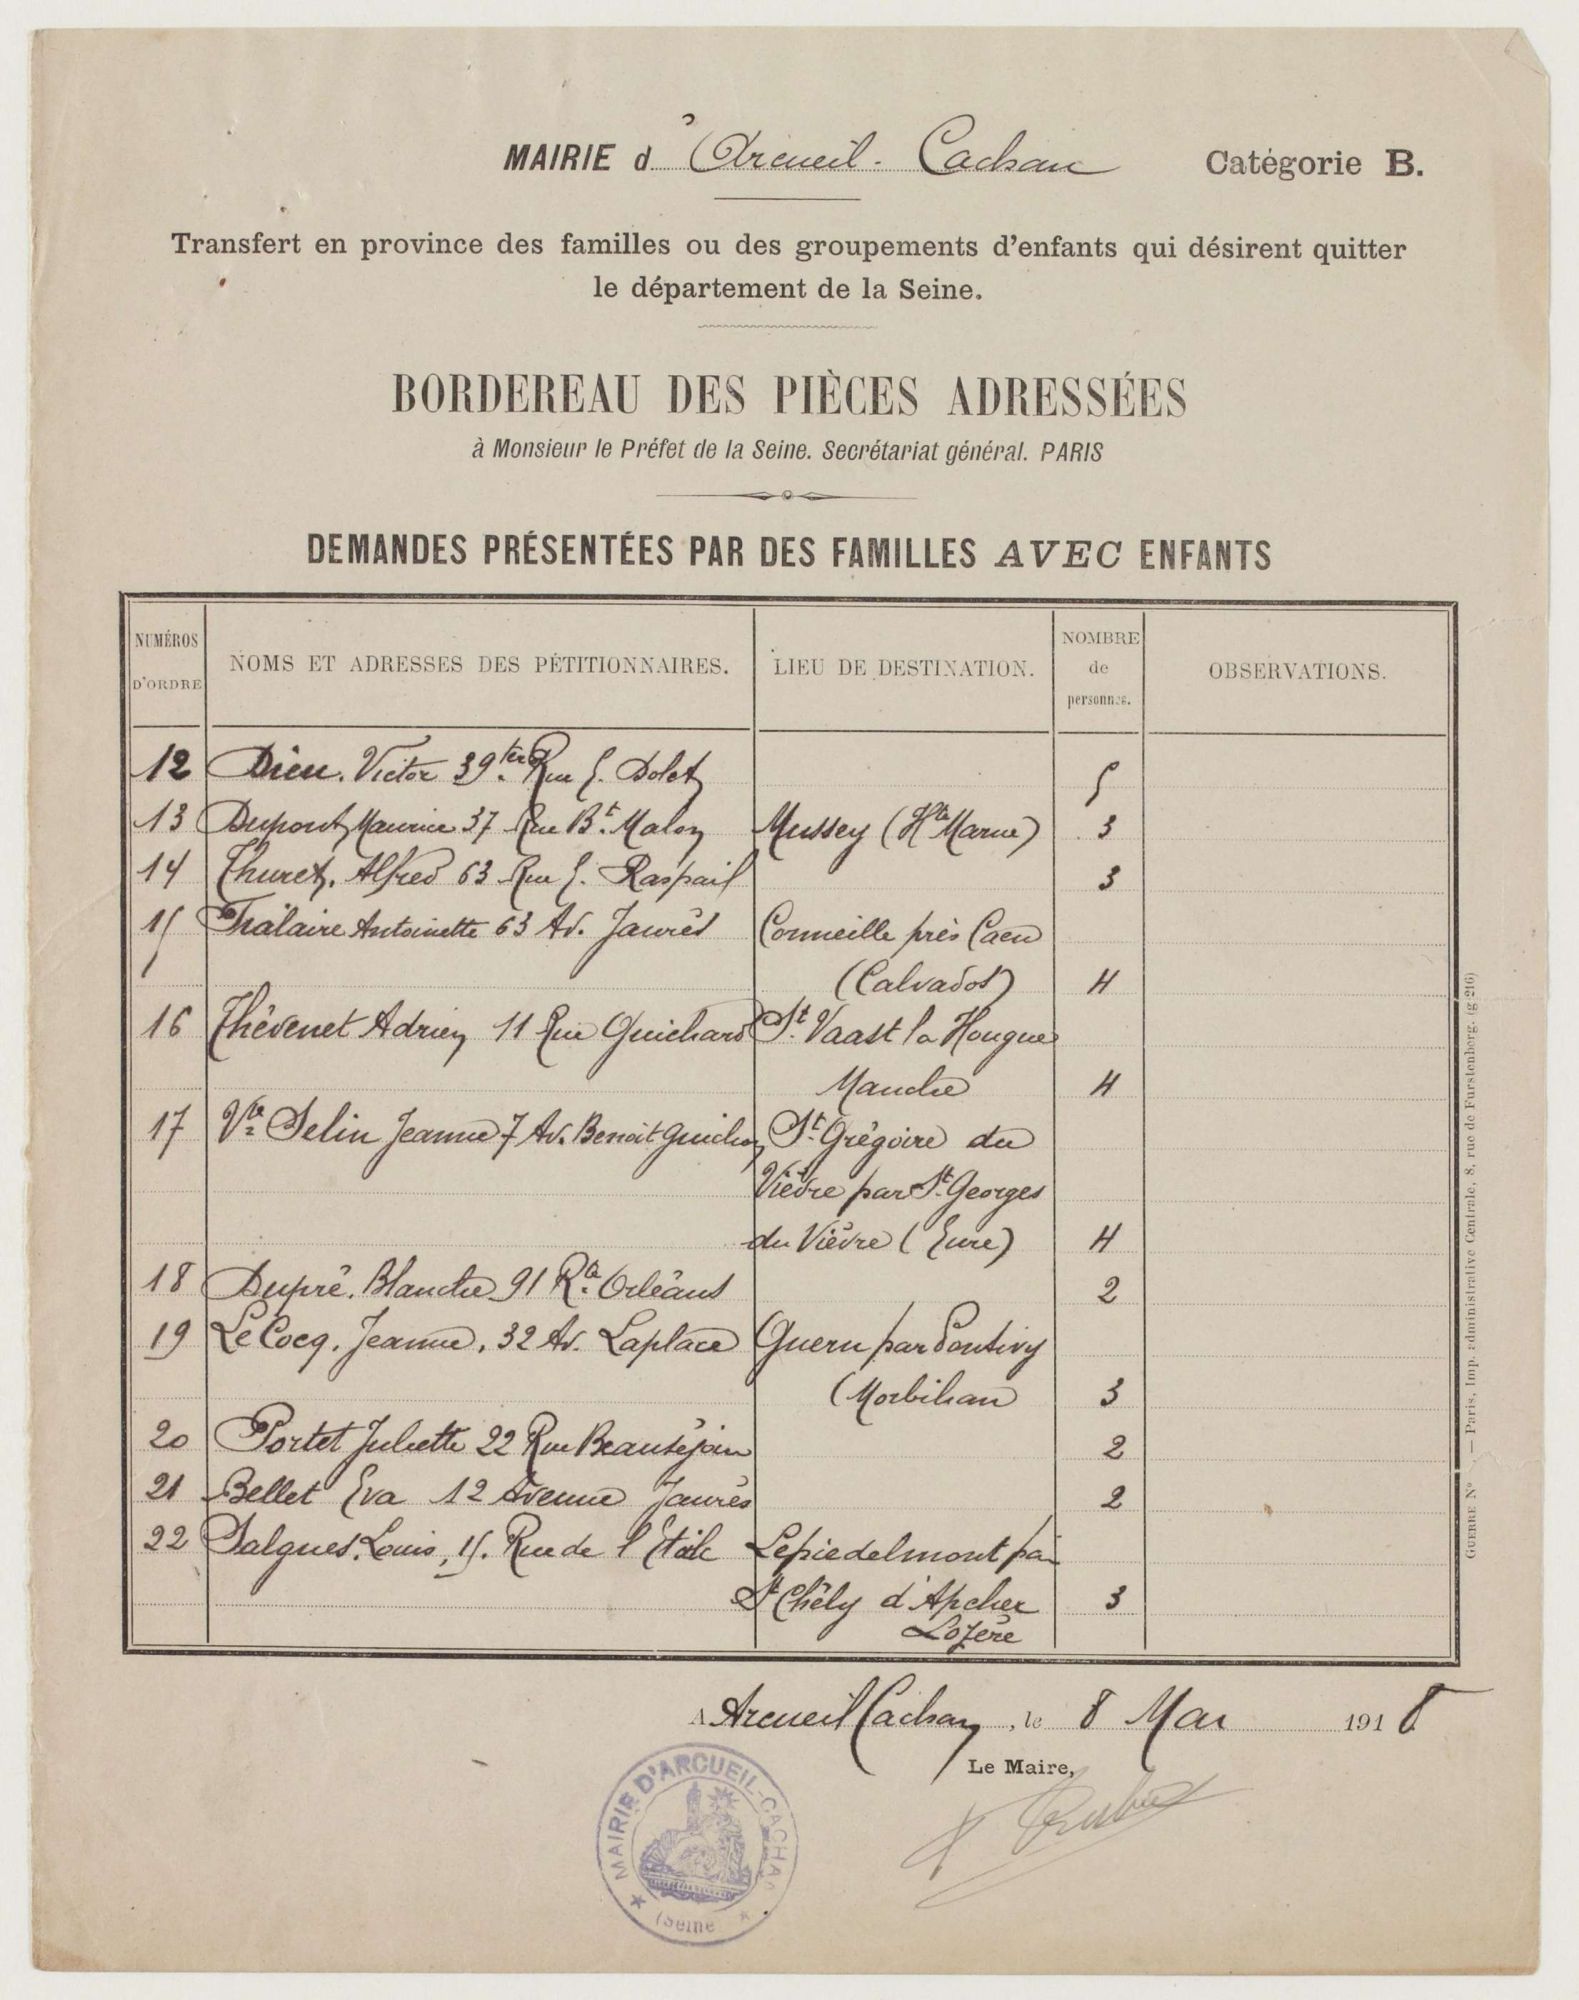 MAIRIE d'Arcueil-Cachan Catégorie B.
Transfert en province des familles ou des groupements d'enfants qui désirent quitter
le département de la Seine.
BORDEREAU DES PIÈCES ADRESSÉES
à Monsieur le Préfet de la Seine. Secrétariat général. PARIS
DEMANDES PRÉSENTÉES PAR DES FAMILLES AVEC ENFANTS
NUMÉROS D'ORDRE NOMS ET ADRESSES DES PÉTITIONNAIRES. LIEU DE DESTINATION. NOMBRE de personnes. OBSERVATIONS.
12 Dieu. Victor 39ter Rue E. Dolet 5
13 Dupont Maurice 37 Rue Bt. Malon Mussey (Hte Marne) 3
14 Thuret. Alfred 63 Rue E. Raspail 3
15 Thalaire Antoinette 63 Av. Jaurès Conneille près Caen
(Calvados) 4
16 Thévenet Adrien 11 Rue Guichard St. Vaast la Hougue
Manche 4
17 Vve Selin Jeanne 7 Av. Benoit Guichon St. Grégoire du
Vièvre par St. Georges
du Vièvre (Eure) 4
18 Dupré. Blanche 91 Rte Orléans 2
19 Le Cocq. Jeanne. 32 Av. Laplace Guern par Pontivy
(Morbihan 3
20 Portet Juliette 22 Rue Beauséjour 2
21 Bellet Eva 12 Avenue Jaurès 2
22 Salgues. Louis, 15. Rue de l'Etoile Lepiedelmont par
St Chély d'Apcher 3
Lozère
A Arcueil Cachan, le 8 Mai 1918
Le Maire,
MAIRIE D'ARCUEIL-CACHAN
(Seine)
GUERRE N° — Paris, Imp. administrative Centrale, 8, rue de Furstenberg. (g 216)